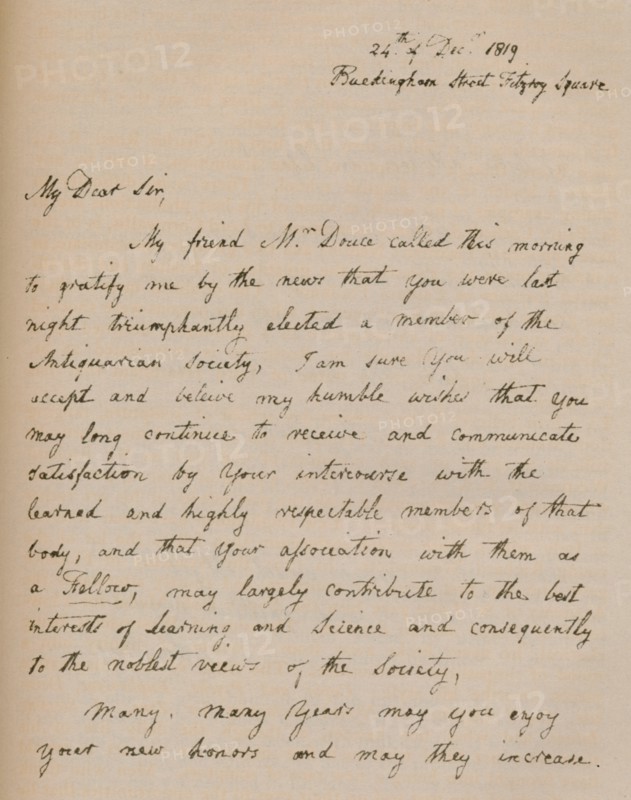 24th of Decr. 1819
Buckingham Street Fitzroy Square
My Dear Sir,
My friend Mr Douce called this morning
to gratify me by the news that you were last
night triumphantly elected a member of the
Antiquarian Society, I am sure you will
accept and beleive my humble wishes that you
may long continue to receive and communicate
satisfaction by your intercourse with the
learned and highly respectable members of that
body, and that your association with them as
a Fellow, may largely contribute to the best
interests of learning and Science and consequently
to the noblest veiws of the Society,
Many. many Years may you enjoy
your new honors and may they increase.
PHOTO12